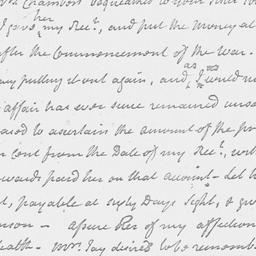 bequeathed to your
I gave her my Rect, and put the Money at
after the Commencement of the War.
putting it out again, and as I would
affair has ever since remained
to ascertain the amount of the
Cent from the Date of my Rect,
paid her on that account - Let
payable at sixty Days sight, &
- assure her of my affection
health - Mrs. Jay desires to be rememb